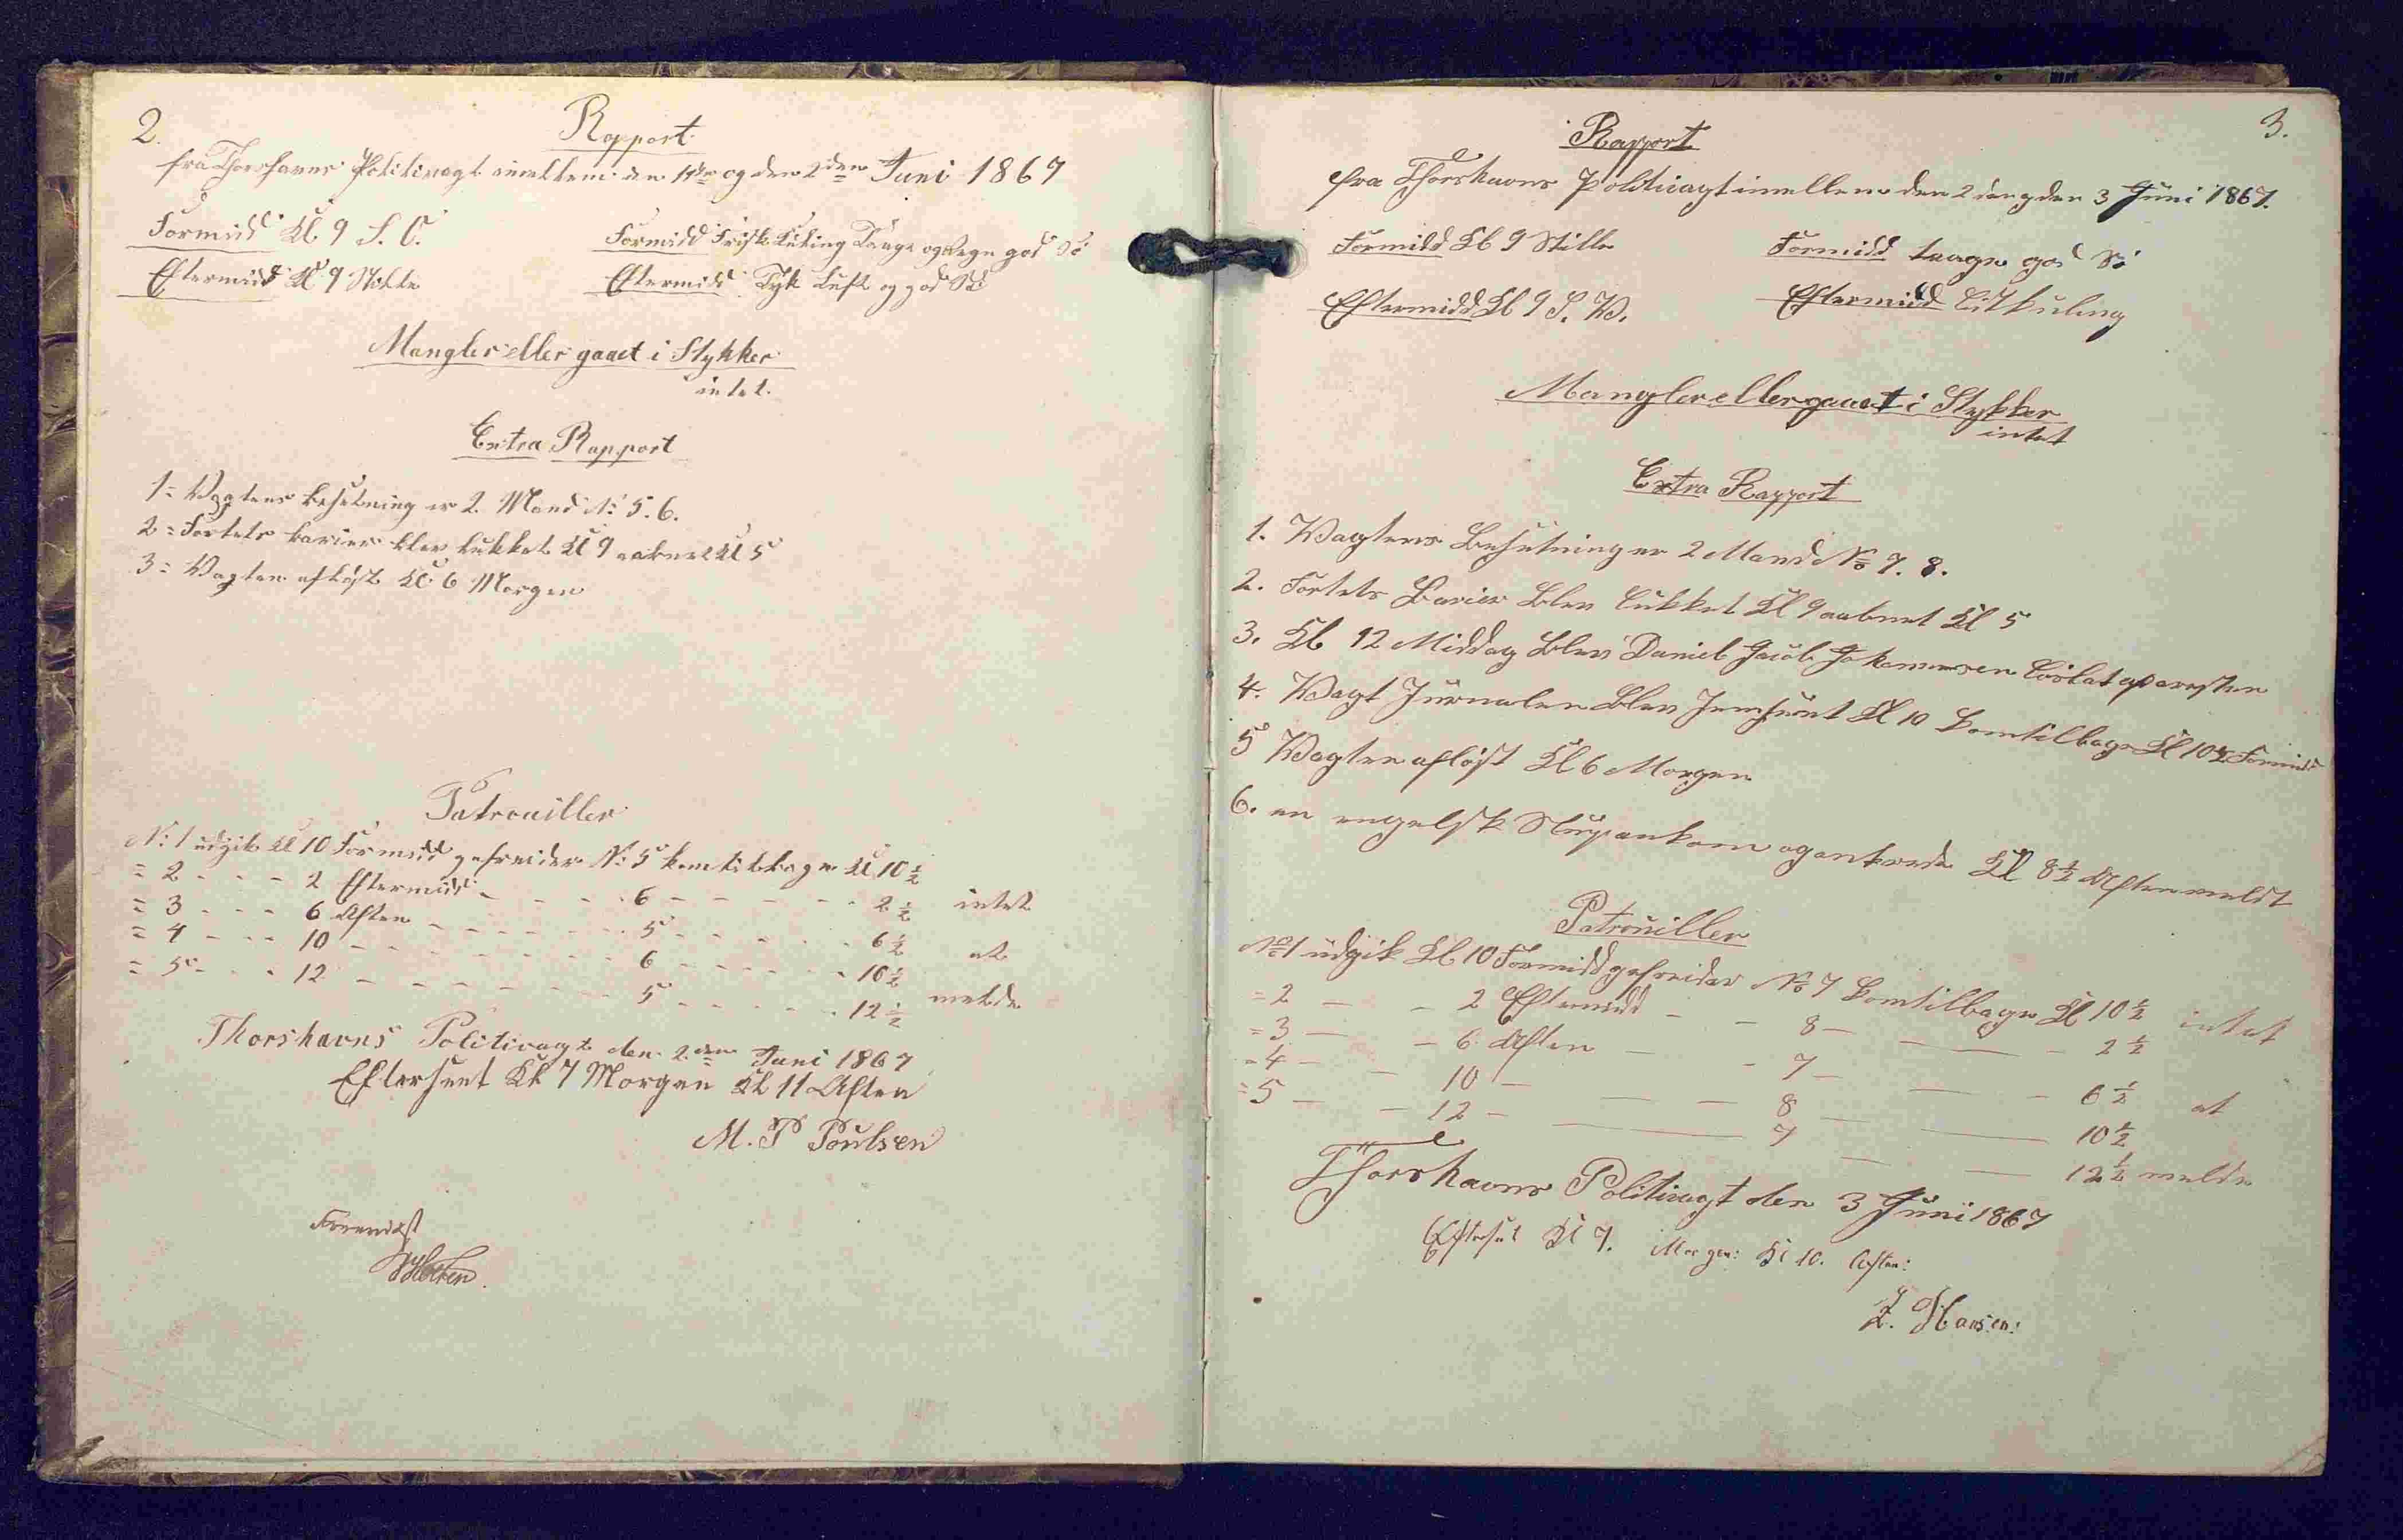 2.
Rapport
fra Thorshavns Politivagt imellem den 1ste og den 2den Juni 1867
Formidd Kl. 9 S. O.
Formidd Frisk Kuling Taage og Regn god Sö
Eftermidd Kl 9 Stille
Eftermidd Tyk Luft og god Sö
Mangler eller gaaet i Stykker
intet.
Extra Rapport
1 = Vagtens besetning er 2 Mand No 5. 6.
2 = Fortets barier blev lukket Kl 9 aabnet Kl 5
3 = Vagten aflöst Kl. 6 Morgen
Patrouiller
No 1 udgik Kl 10 Formidd gefreider No 5 kom tilbage Kl 10 1/2
= 2 - - - 2 Eftermidd - - - - 6 - - - - - 2 1/2 intet
= 3 - - - 6 Aften - - - - - - 5 - - - - - 6 1/2
= 4 - - - 10 - - - - - - - - 6 - - - - - 10 1/2 at
= 5 - - - 12 - - - - - - - - 5 - - - - - 12 1/2 melde
Thorshavns Politivagt den 2den Juni 1867
Efterseet Kl 7 Morgen Kl 11 Aften
M. P Poulsen
Foreviist
3.
Rapport
fra Thorshavns Politivagt imellem den 2 den og den 3 Juni 1867.
Formidd Kl 9 Stille
Formidd taage god Sö
Eftermidd Kl 9 S. W.
Eftermidd Litkuling
Mangler eller gaaet i Stykker
intet
Extra Rapport
1. Wagtens Besetning er 2 Mand No 7. 8.
2. Fortets Barier Blev lukket Kl 9 aabnet Kl 5
3. Kl 12 Middag Blev Daniel Jacob Jokomesen löslat af aresten
4. Wagt Jurnalen Blev Jemsent Kl 10 komtilbage Kl 10 1/2 Formidd
5 Wagten aflöst Kl 6 Morgen
6. en engelsk Slup ankom og ankrede Kl 8 1/2 Aften meldt
Patrouiller
No 1 udgik Kl. 10 Formidd gefreider No 7 komtilbage Kl 10 1/2 intet
= 2 — - 2 Eftermidd - - 8 — — - 2 1/2
= 3 — - 6 Aften — - 7 — — - 6 1/2 at
= 4 — - 10 — — - 8 — — 10 1/2
= 5 — - 12 - — 7 — — 12 1/2 melde
Thorshavns Politivagt den 3 Juni 1867
Efterset Kl 7. Morgen: Kl 10. Aften:
Z. Hansen: